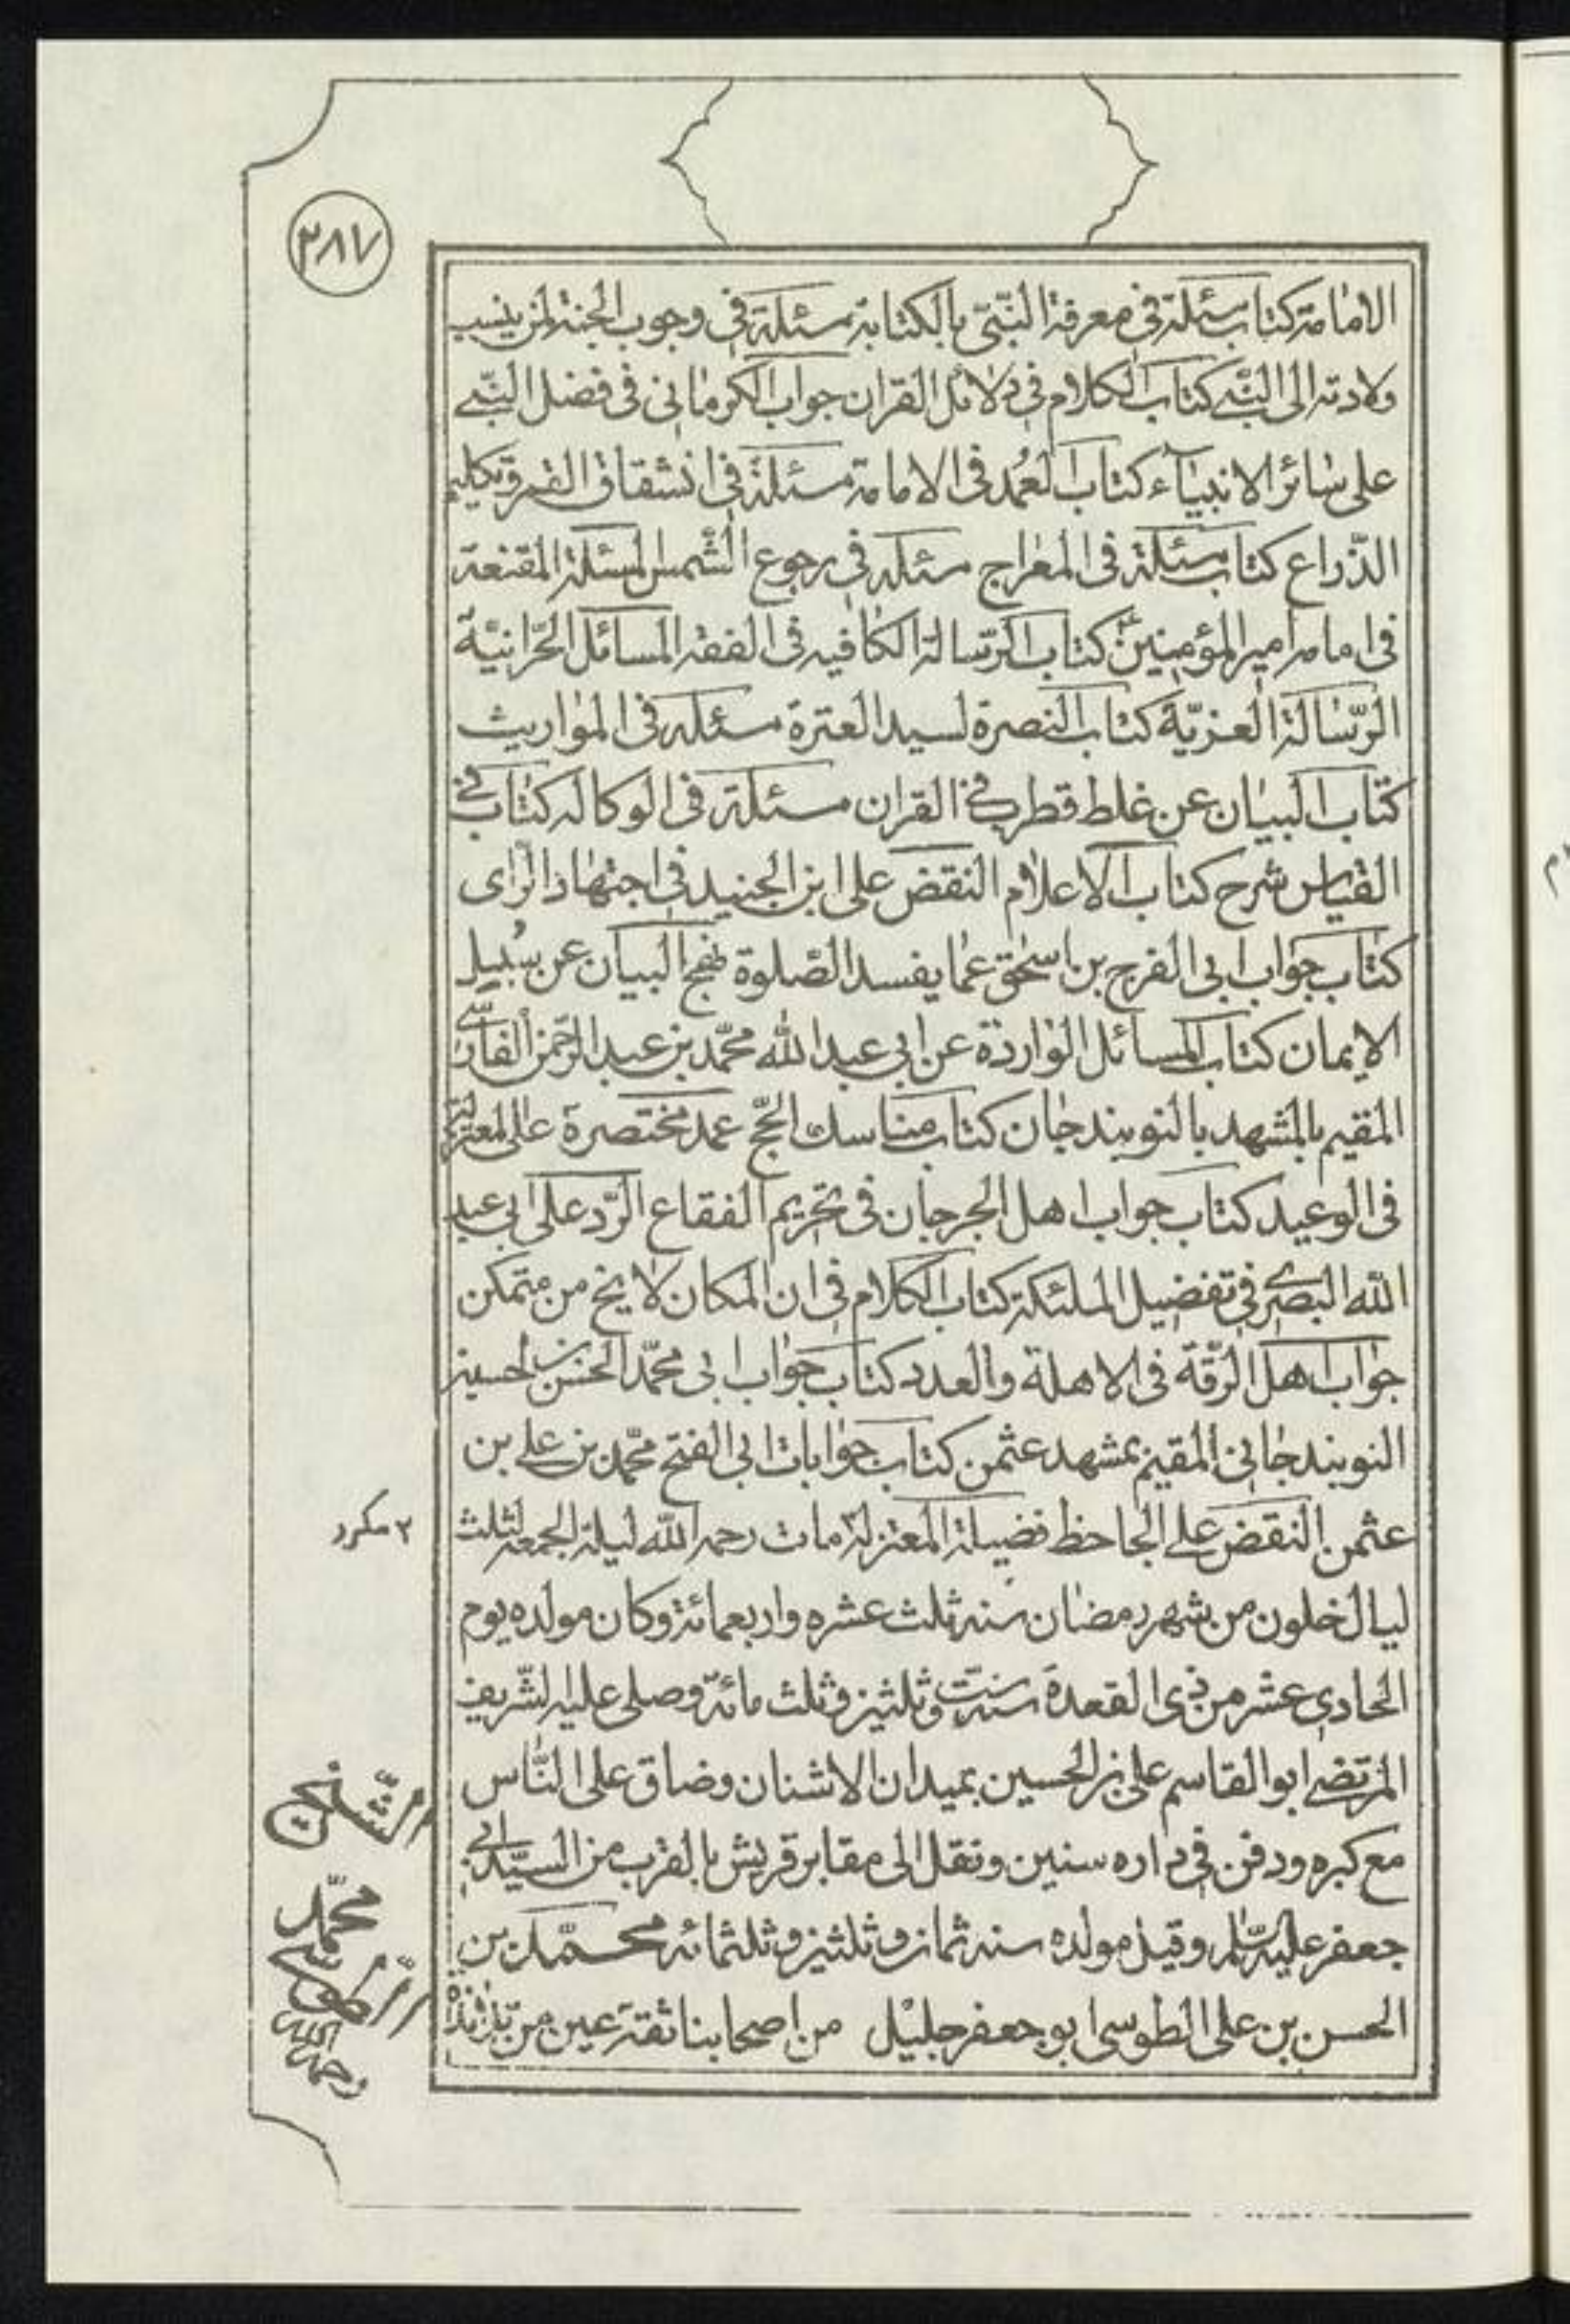 ٣٨٧
الامامة كتاب مسئلة في معرفة النبي بالكتابة مسئلة في وجوب الجنة لمن ينسب
ولادته الى النبي كتاب الكلام في دلائل القران جواب الكرماني في فضل النبي
على سائر الانبياء كتاب العُمد في الامامة مسئلة في انشقاق القمر وتكليم
الذّراع كتاب مسئلة في المعراج مسئلة في رجوع الشّمس المسئلة المقنعة
في امامة امير المؤمنين كتاب الرّسالة الكافيه في الفقه المسائل الحرّانيّة
الرّسالة العزيّة كتاب النصرة لسيد العترة مسئلة في المواريث
كتاب البيان عن غلط قطرب في القران مسئلة في الوكاله كتاب في
القياس شرح كتاب الاعلام النقض على ابن الجنيد في اجتهاد الرّاى
كتاب جواب ابى الفرج بن اسحٰق عما يفسد الصّلوة نهج البيان عن سُبيل
الايمان كتاب المسائل الواردة عن ابى عبد الله محمّد بن عبد الرّحمن الفارسى
المقيم بالمشهد بالنوبندجان كتاب مناسك الحجّ عمد مختصرة على المعتزلة
في الوعيد كتاب جواب اهل الجرجان في تحريم الفقاع الرّد على ابى عبد
الله البصرى في تفضيل الملئكة كتاب الكلام في ان المكان لا يخ من متمكن
جواب اهل الرّقّة في الاهلة والعدد كتاب جواب ابى محمّد الحسن بن الحسين
النوبندجانى المقيم بمشهد عثمن كتاب جوابات ابى الفتح محمّد بن على بن
عثمن النقض على الجاحظ فضيلة المعتزلة مات رحمه الله ليلة الجمعة لثلث
٢ مكرر
ليال خلون من شهر رمضان سنه ثلث عشره واربعمائة وكان مولده يوم
الحادى عشر من ذى القعدة سنة ستّ وثلثين وثلث مائة وصلى عليه الشّريف
المرتضى ابو القاسم على بن الحسين بميدان الاشنان وضاق على النّاس
مع كبره ودفن في داره سنين ونقل الى مقابر قريش بالقرب من السيّد ابى
جعفر عليه السّلام وقيل مولده سنه ثمان وثلثين وثلثمائه محمّد بن
الحسن بن على الطوسى ابو جعفر جليل من اصحابنا ثقة عين من تلامذة
الشّيخ
محمّد
الطّوسى
رحمه الله